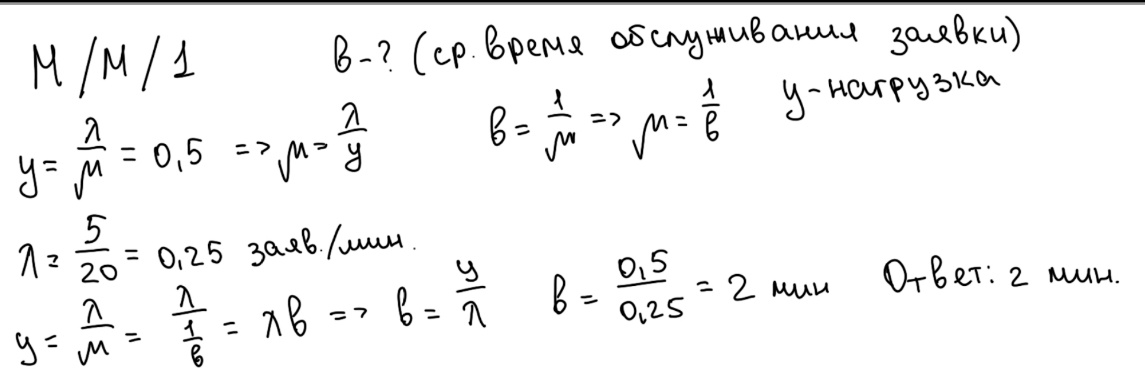 M/M/1 b-? (ср. время обслуживания заявки)
y = λ/μ = 0,5 => μ = λ/y b = 1/μ => μ = 1/b y-нагрузка
λ = 5/20 = 0,25 заяв./мин.
y = λ/μ = λ/(1/b) = λb => b = y/λ b = 0,5/0,25 = 2 мин Ответ: 2 мин.